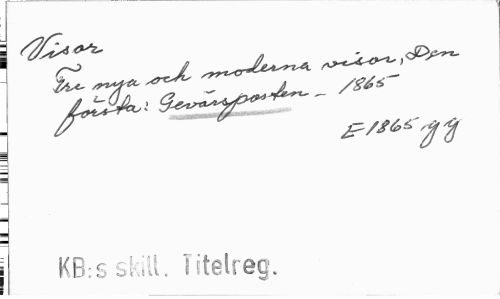 Visor
Tre nya och moderna visor, Den
första: Gevärsposten - 1865
E 1865 gg
KB:s skill. Titelreg.